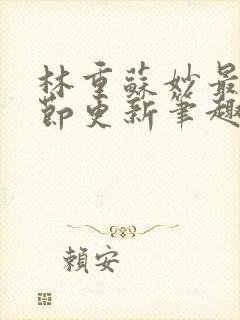 林重蘇妙最
節更新筆趣
賴安